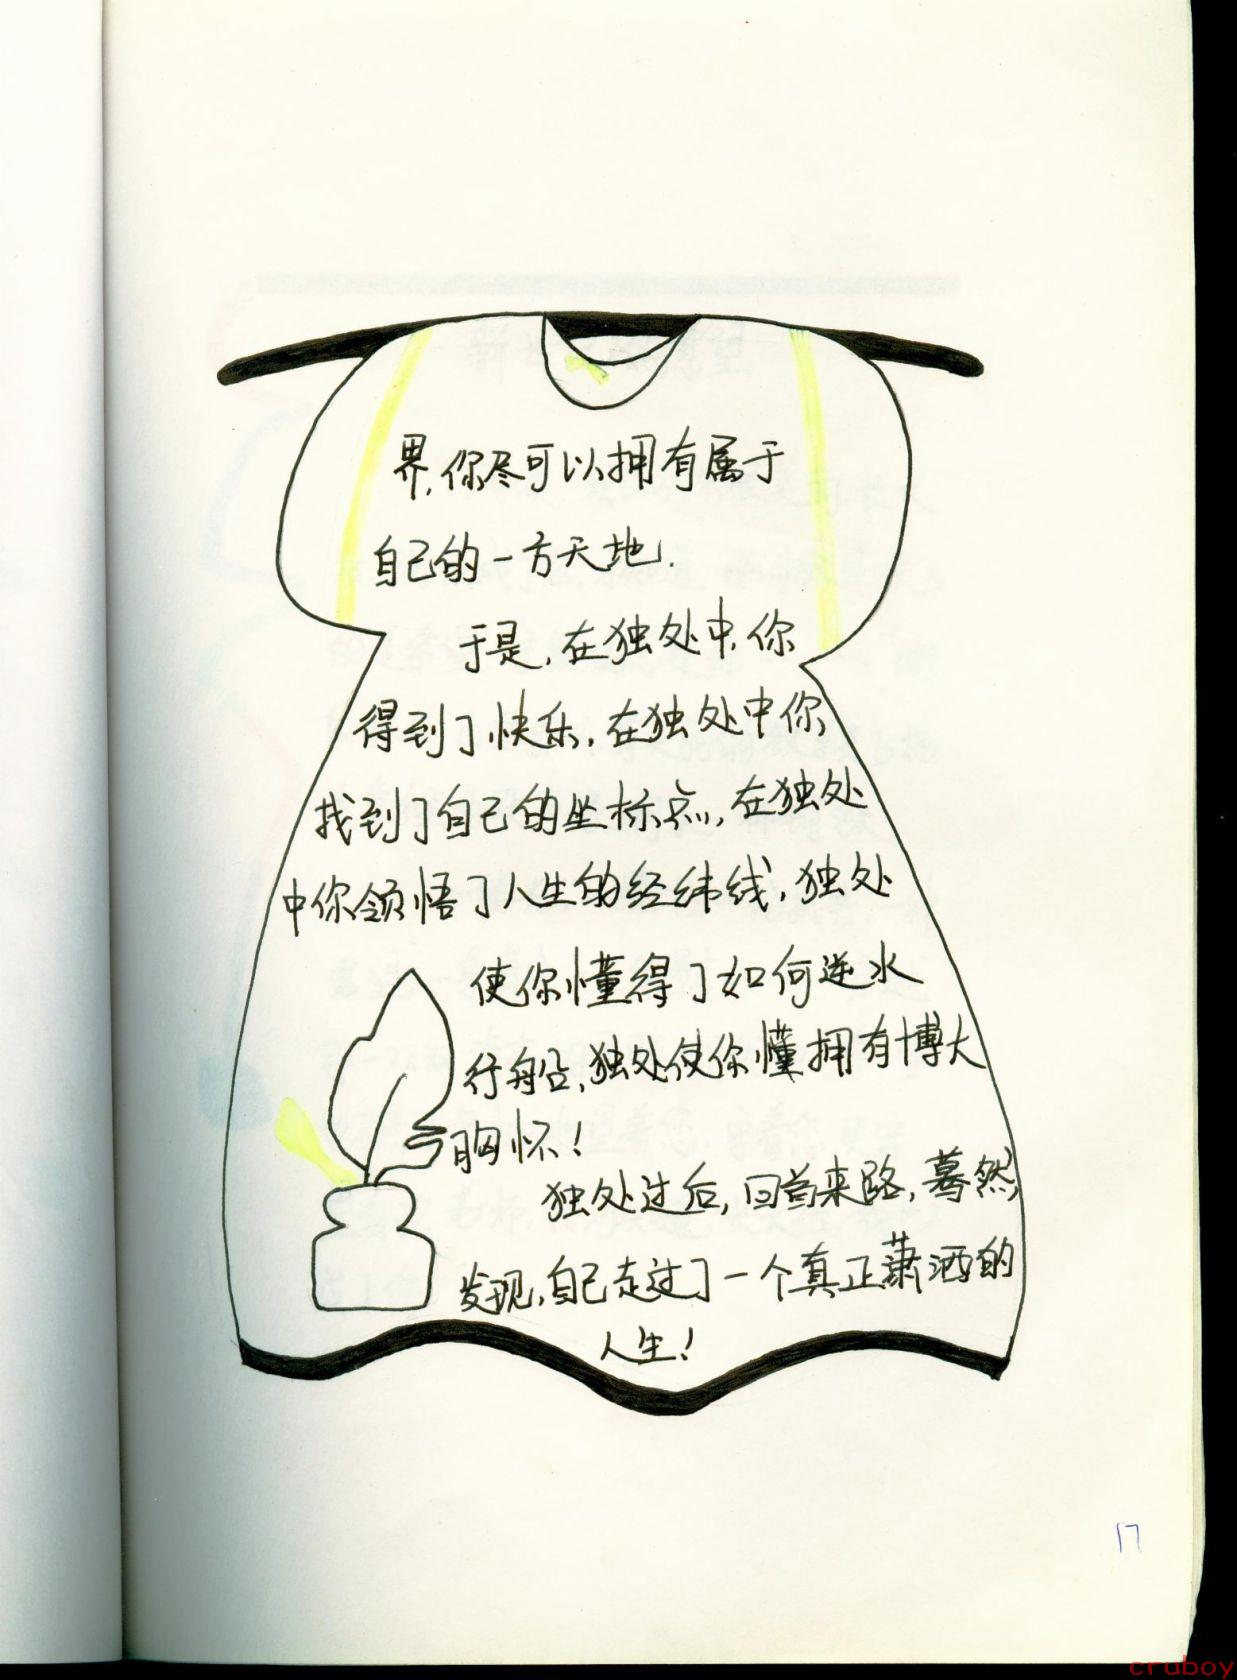 界,你尽可以拥有属于
自己的一方天地.
于是,在独处中,你
得到了快乐,在独处中你
找到了自己的坐标点,在独处
中你领悟了人生的经纬线,独处
使你懂得了如何逆水
行船,独处使你懂拥有博大
胸怀!
独处过后,回首来路,蓦然
发现,自己走过了一个真正萧洒的
人生!
17
cruboy